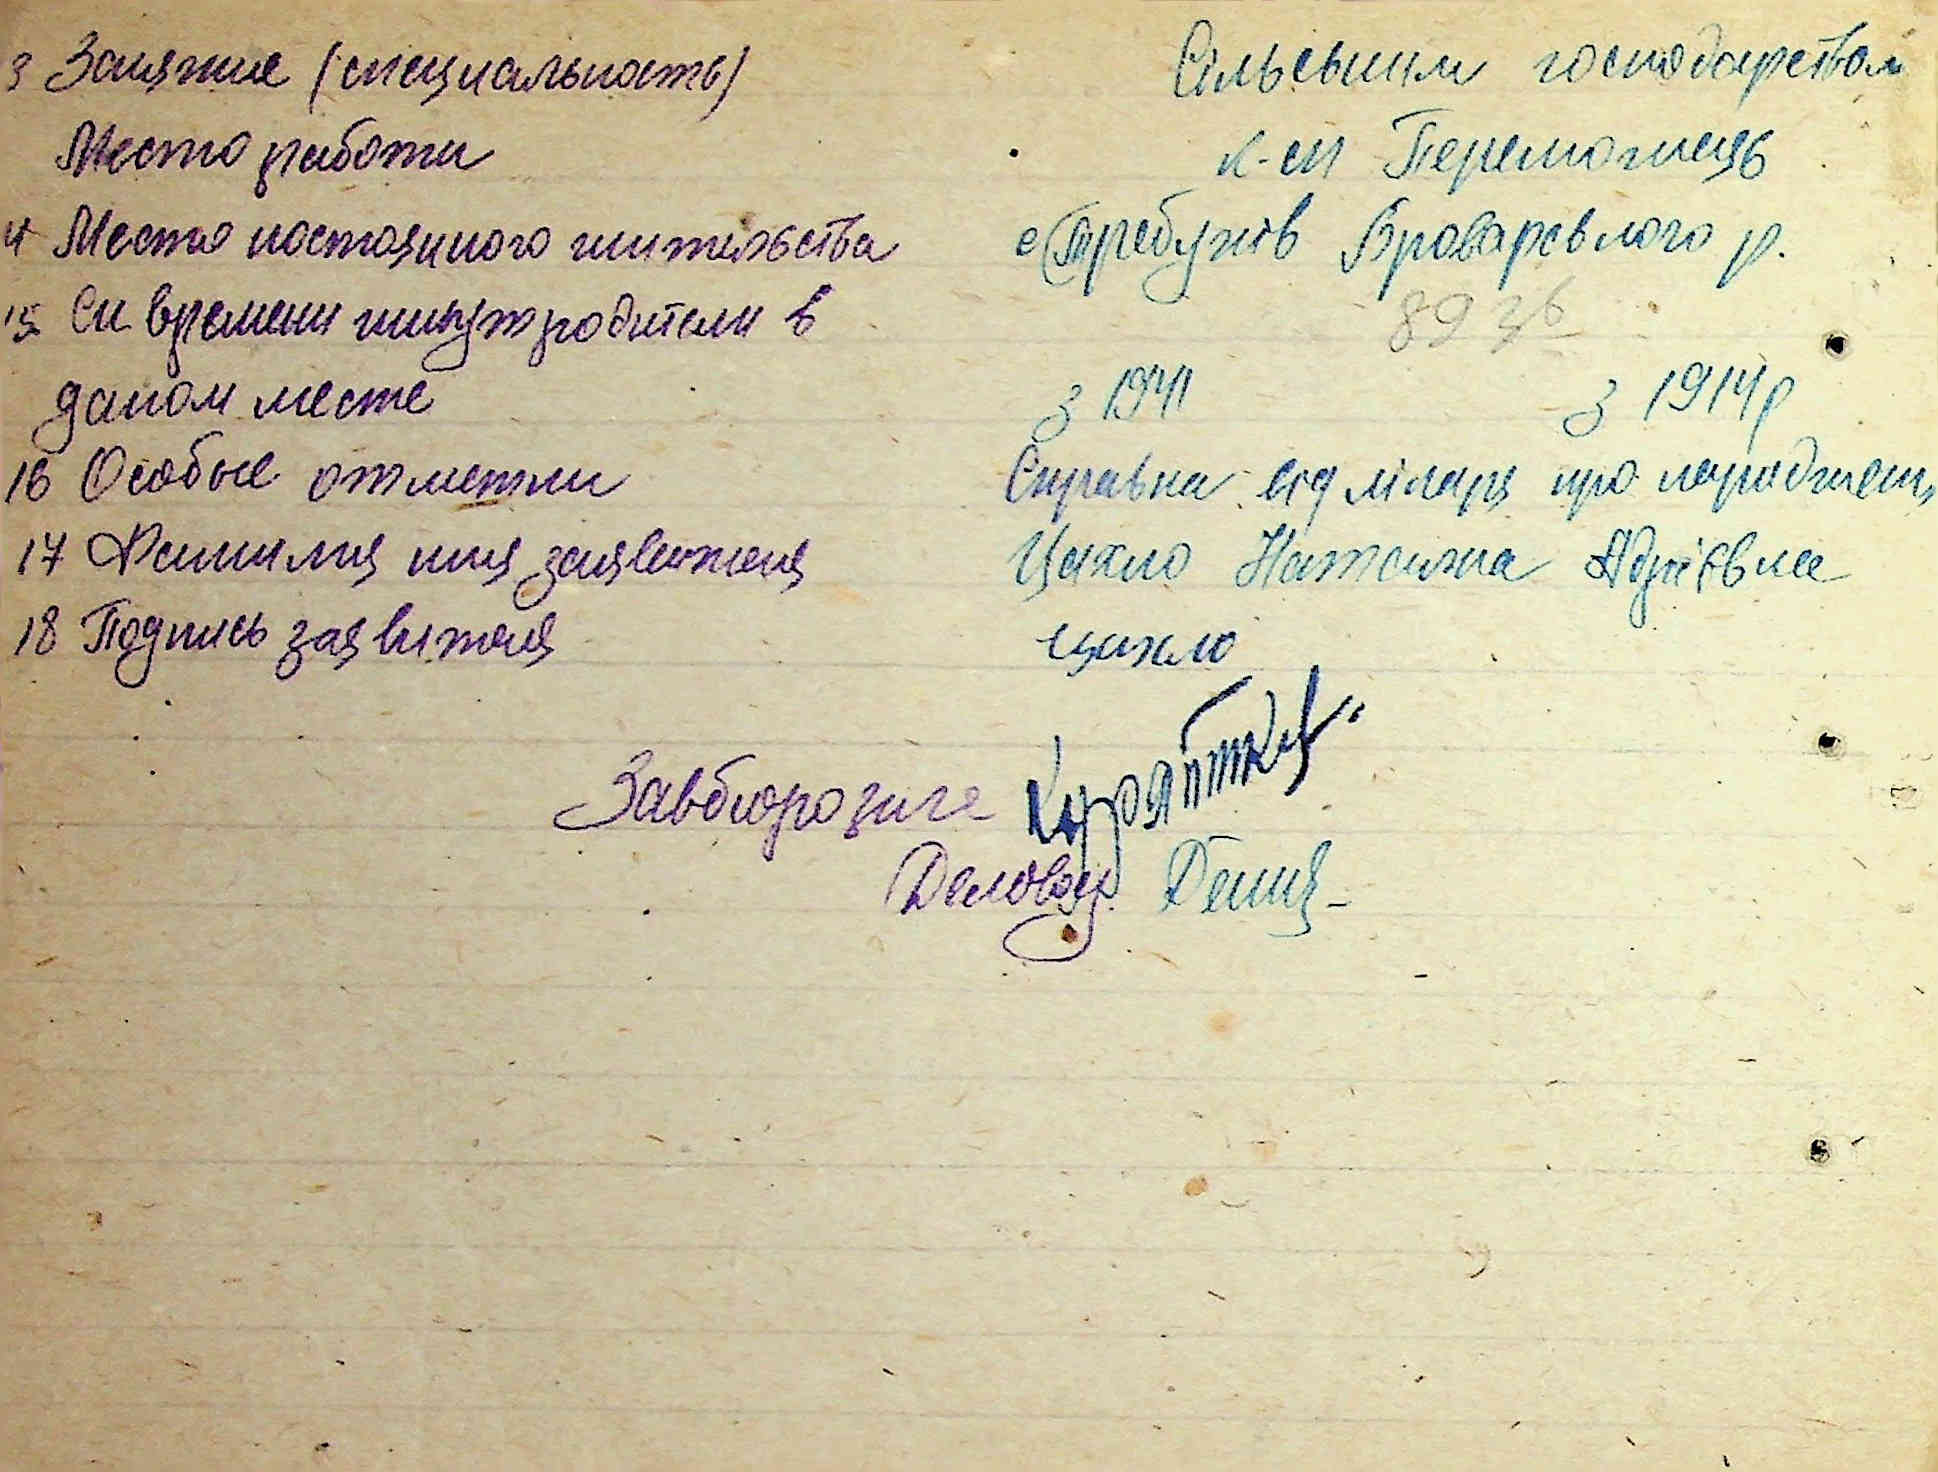 3 Занятие (специальность) Сільським господарством
Место работи к-сп Переможець
4 Место постоянного жительства с Требухів Броварського р.
15 Ск времени живут родители в
даном месте з 1941 з 1914 р
16 Особые отметки Справка від лікаря про народжен,
17 Фамилия имя заявителя Цахло Наталка
18 Подпись заявителя Цахло
Завбюрозагс
Деловод